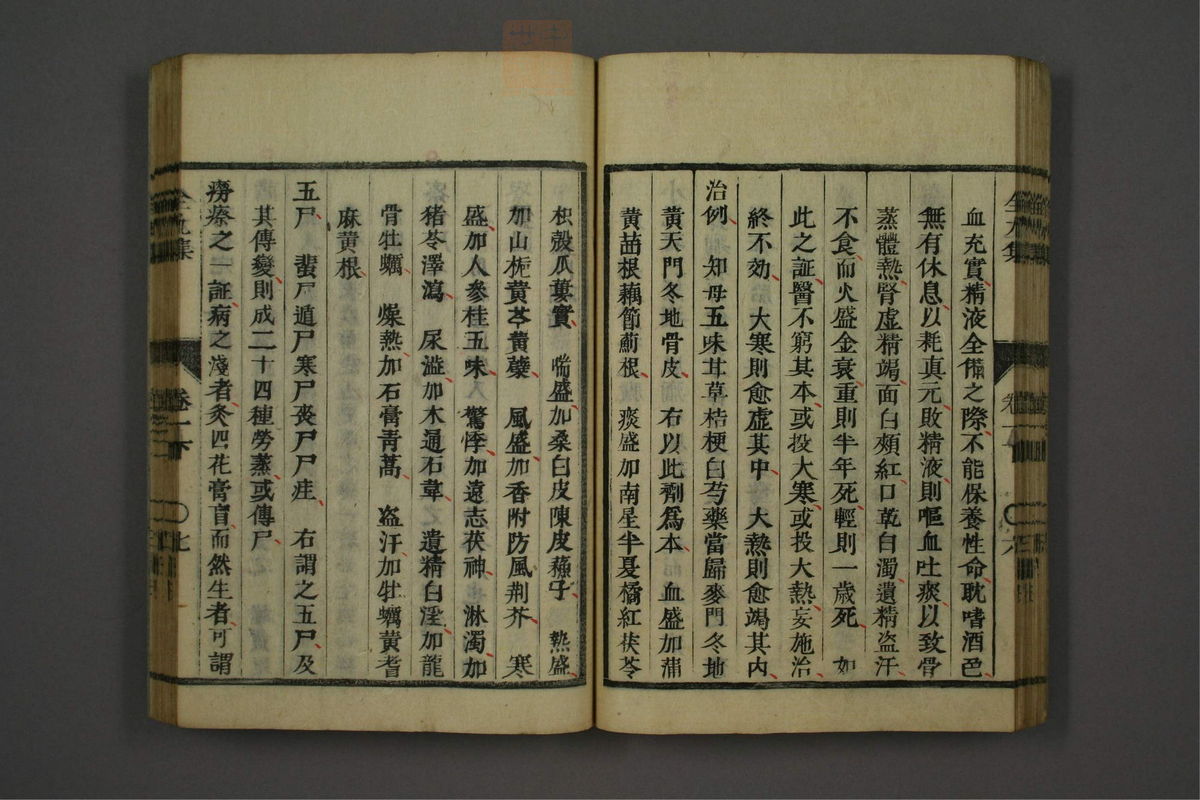 血充實精液全備之際不能保養性命耽嗜酒色
無有休息以耗真元敗精液則嘔血吐痰以致骨
蒸體熱腎虛精竭面白頰紅口乾白濁遺精盜汗
不食而火盛金衰重則半年死輕則一歲死 如
此之証醫不窮其本或投大寒或投大熱妄施治
終不効 大寒則愈虛其中 大熱則愈竭其內
治例 知母五味甘草桔梗白芍藥當歸麥門冬地
黃天門冬地骨皮 右以此劑爲本 血盛加蒲
黃茜根藕節薊根 痰盛加南星半夏橘紅茯苓
枳殼瓜蔞實 喘盛加桑白皮陳皮蘓子 熱盛
加山梔黃芩黃蘗 風盛加香附防風荆芥 寒
盛加人參桂五味 驚悸加遠志茯神 淋濁加
猪苓澤瀉 尿澁加木通石韋 遺精白淫加龍
骨牡蠣 燥熱加石膏靑蒿 盗汗加牡蠣黃耆
麻黃根
五尸 蜚尸遁尸寒尸喪尸尸疰 右謂之五尸及
其傳變則成二十四種勞蒸或傳尸
癆瘵之一証病之淺者灸四花膏盲而然生者可謂
全九集
卷一下
〇七
全九集
卷一下
〇六